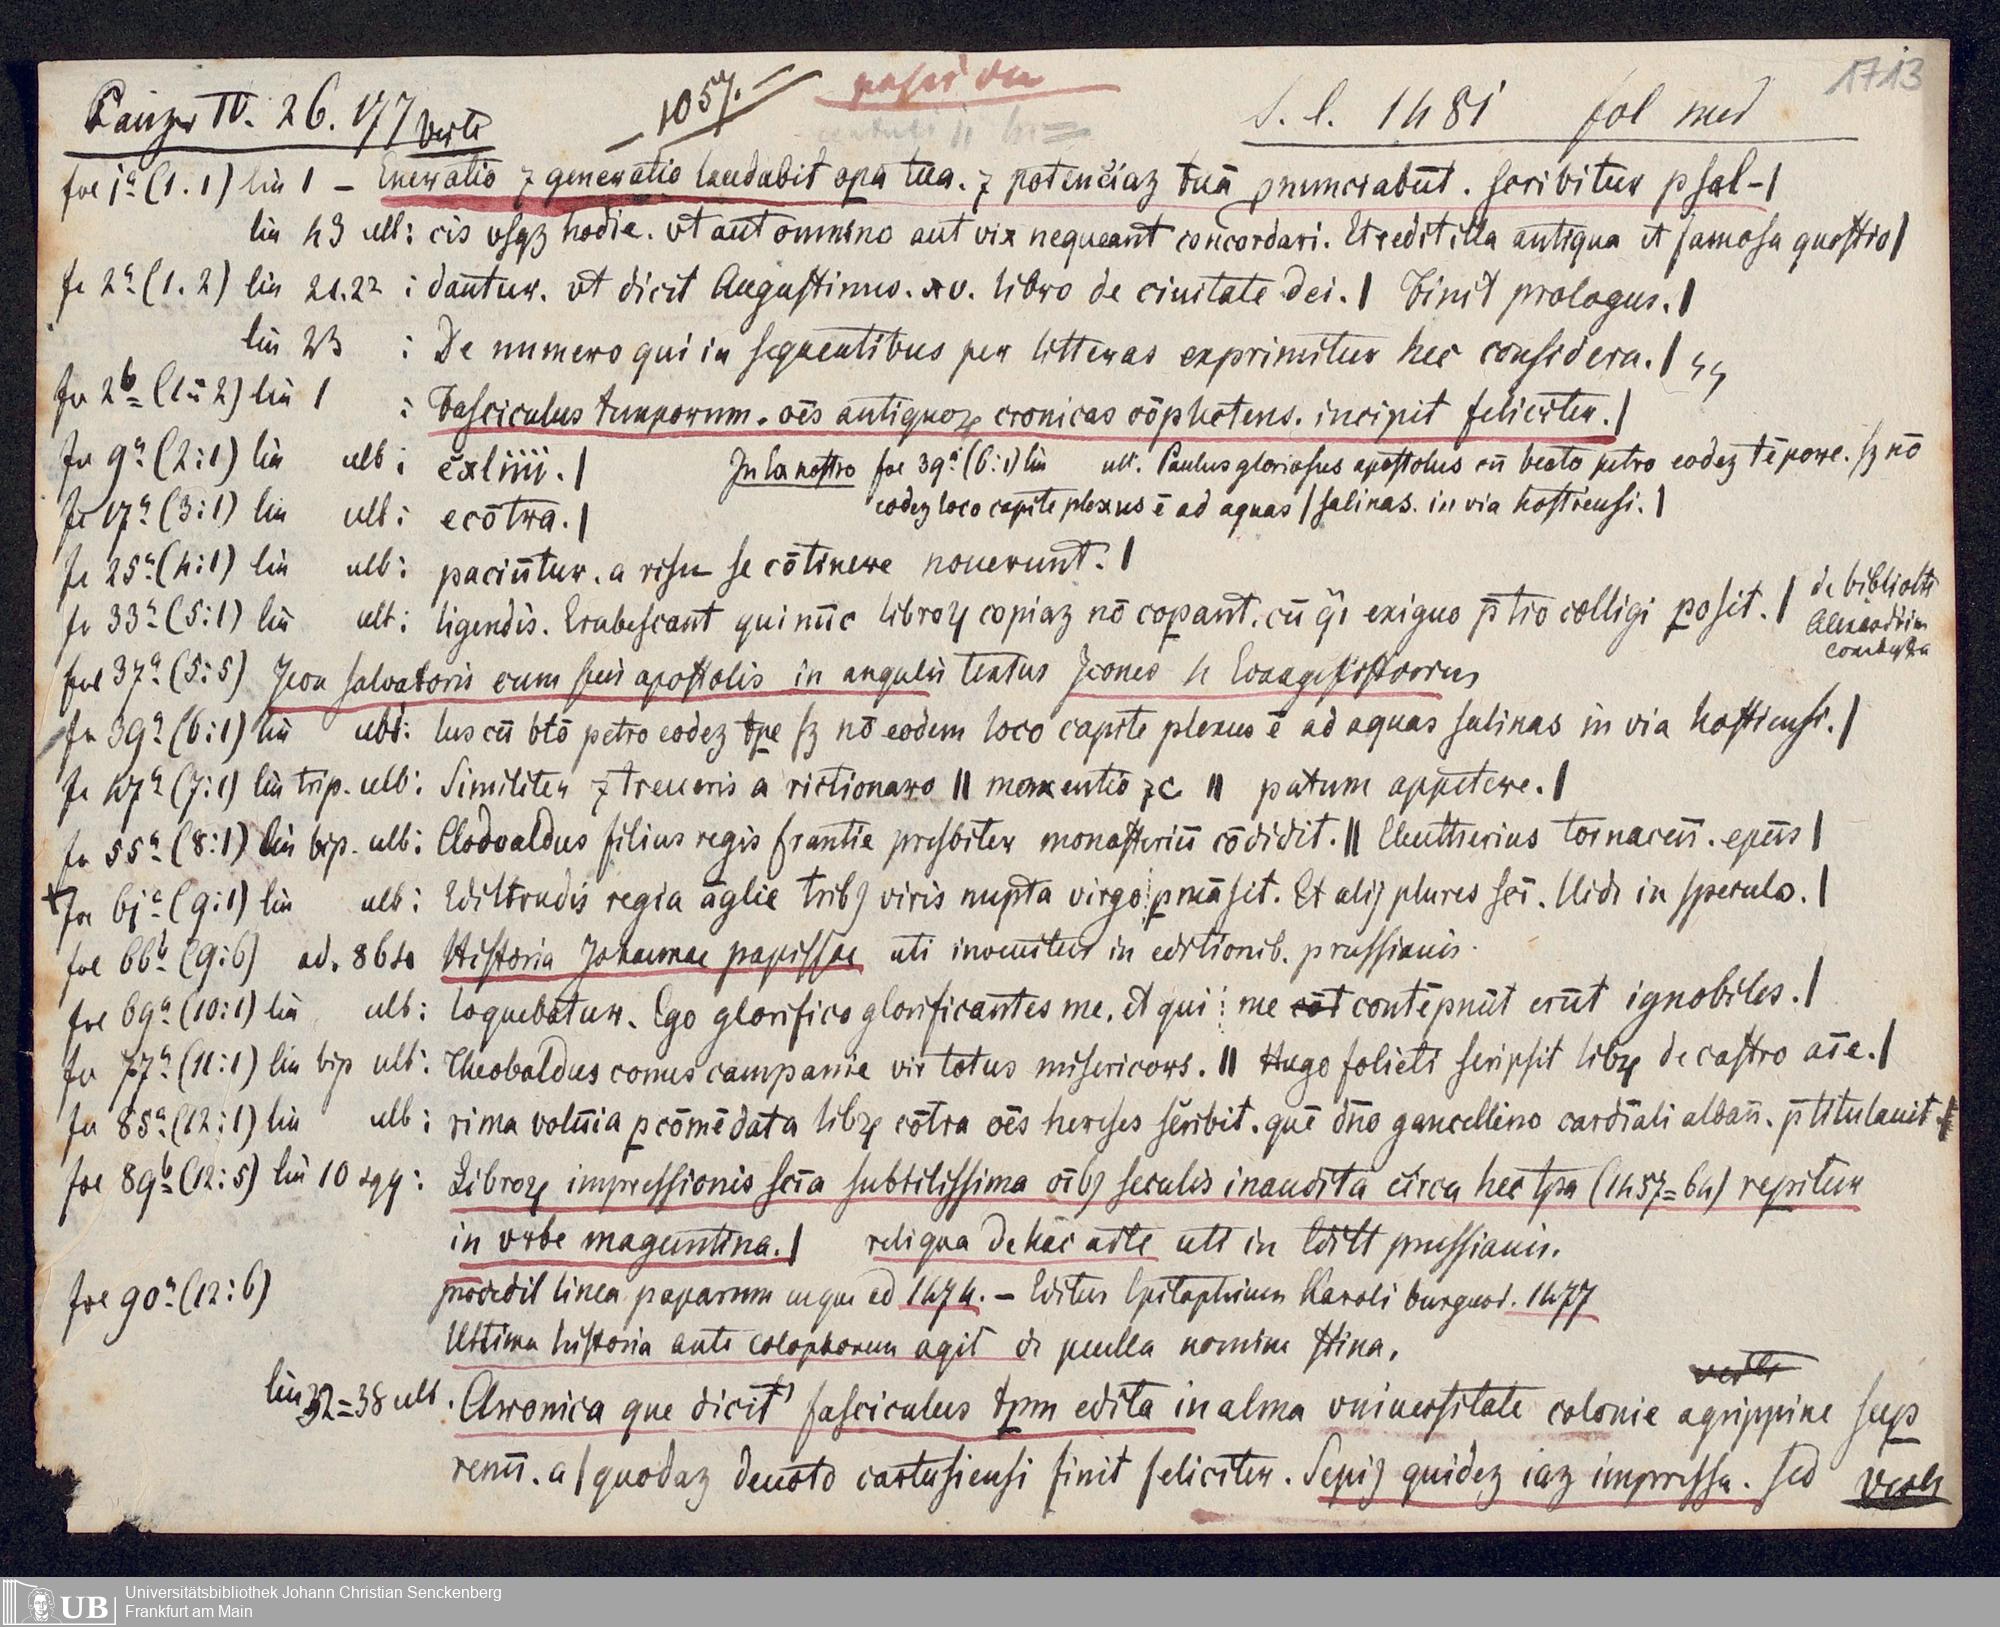 Panzer IV. 26. 177 verte
1057.
S. l. 1481 fol med
1713
foe 1ª (1.1) lin 1 – Eneratio ⁊ generatio laudabit opa tua. ⁊ potenciaz tuā pnunciabūt. scribitur psal-|
lin 43 ult: cis vsqz hodie. vt aut omnino aut vix nequeant concordari. Et redit illa antiqua et famosa questio|
fe 2ª (1.2) lin 21.22 : dantur. vt dicit Augustinus. xv. libro de ciuitate dei.| Finit prologus.|
lin 23 : De numero qui in sequentibus per litteras exprimitur hec considera.|
fe 2b (1:2) lin 1 : Fasciculus temporum. oēs antiquoꝝ cronicas cōplectens. incipit feliciter.|
fe 9ª (2:1) lin ult : cxliiii.|
In Ex nostro foe 39ª (6:1) lin ult. Paulus gloriosus apostolus cū beato petro eodez tēpore. sz nō
eodez loco capite plexus ē ad aquas | salinas. in via hostiensi.|
fe 17ª (3:1) lin ult: ecōtra.|
fe 25ª (4:1) lin ult: paciūtur. a risu se cōtinere nouerunt.|
fe 33ª (5:1) lin ult: ligendis. Erubescant qui nūc libroꝝ copiaz nō copant. cū qi exiguo p̄tio colligi posit.|
de biblioth
Alexandrin
combusta
foe 37ª (5:5) Icon salvatoris cum suis apostolis in angulis textus Icones 4 Evangelistarum
fe 39ª (6:1) lin ult: lus cū btō petro eodez tpe sz nō eodem loco capite plexus ē ad aquas salinas in via hostiensi.|
fe 47ª (7:1) lin trip. ult: Similiter ⁊ treueris a rictionaro || mercentio ⁊c || patum appetere.|
fe 55ª (8:1) lin bip. ult: Clodoaldus filius regis frantie presbiter monasteriū cōdidit.|| Eleutherius tornaceū. epūs|
fe 61ª (9:1) lin ult: Ediltrudis regia āglie tribꝫ viris nupta virgo pmāsit. Et alij plures scī. Uide in speculo.|
foe 66b (9:6) ad. 864 Historia Johannae papissae uti invenitur in editionib. prussianis.
foe 69ª (10:1) lin ult: loquebatur. Ego glorifico glorificantes me. et qui me contēpnūt erūt ignobiles.|
fe 77ª (11:1) lin bip ult: Theobaldus comes campanie vir totus misericors.|| Hugo folieti scripsit libꝝ de castro aīe.|
fe 85ª (12:1) lin ult: rima volūia pcōmēdata libꝝ cōtra oēs hereses scribit. quē dn̄o gancellino cardīali albaū. p̄titulauit.|
foe 89b (12:5) lin 10 sqq: Libroꝝ impressionis scīa subtilissima oībꝫ seculis inaudita circa hec tpa (1457=64) repitur
in vrbe maguntina.| reliqua de hac arte uti in Edit prussianis.
foe 90ª (12:6) procedit linea paparum usque ad 1474. – Editus Epitaphium Karoli burgund. 1477
Ultima historia ante colophonem agit de puella nomine Stina.
lin 32=38 ult. Chronica que dicit' fasciculus tpm edita in alma vniuersitate colonie agrippine sup
renū. a | quodaz deuoto cartusiensi finit feliciter. Sepiꝫ quidez iaz impressa. sed verte
Universitätsbibliothek Johann Christian Senckenberg
Frankfurt am Main
UB